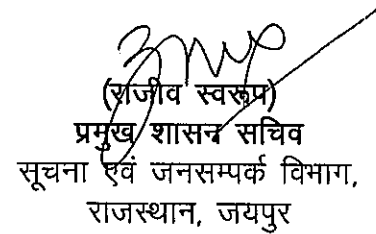 (राजीव स्वरूप)
प्रमुख शासन सचिव
सूचना एवं जनसम्पर्क विभाग,
राजस्थान, जयपुर